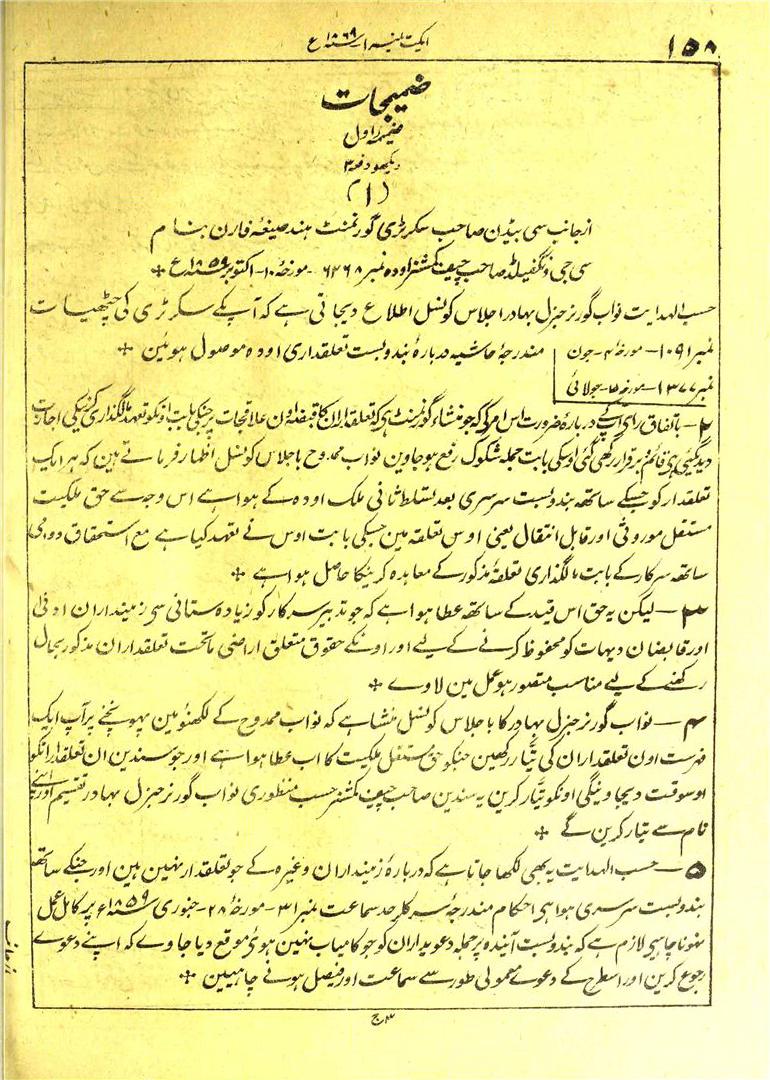 ۱۵۸
ایکٹ نمبر ۱ سنہ ۱۸۶۹ ع
ضمیمجات
ضمیمہ اول
دیکھو دفعہ ۳
(۱)
از جانب سی بیڈن صاحب سکرٹری گورنمنٹ ہند صیغۂ فارن بنام
سی جی ونگفیلڈ صاحب چیف کمشنر اودہ نمبر ۶۲۶۸ - مورخۂ ۱۰ - اکتوبر سنہ ۱۸۵۹ ع ٭
حسب الہدایت نواب گورنر جنرل بہادر اجلاس کونسل اطلاع دیجاتی ہے کہ آپ کے سکرٹری کی چٹھیات
نمبر ۱۰۹۱ - مورخۂ ۴ - جون مندرجۂ حاشیہ دربارۂ بندوبست تعلقداری اودہ موصول ہوئین ٭
نمبر ۱۳۷۷ - مورخۂ ۱۵ - جولائی
۲ - باتفاق رای آپکے دربارۂ ضرورت اس امر کی کہ جو منشاء گورنمنٹ ہی کہ تعلقداران کا قبضہ اون علاقجات پر جنکی بابت اونکو تعہد مالگذاری کرنیکی اجازت
دیگئی ہی قائم و برقرار رکھی گئی اوسکی بابت جملہ شکوک رفع ہوجاوین نواب ممدوح باجلاس کونسل اظہار فرماتے ہین کہ ہر ایک
تعلقدار کو جسکے ساتھ بندوبست سرسری بعد تسلط ثانی ملک اودہ کے ہوا ہے اس وجہ سے حق ملکیت
مستقل موروثی اور قابل انتقال یعنی اوس تعلقہ مین جسکی بابت اوس نے تعہد کیا ہے مع استحقاق دوامی
ساتھ سرکار کے بابت مالگذاری تعلقۂ مذکور کے معاہدہ کرنیکا حاصل ہوا ہے ٭
۳ - لیکن یہ حق اس قید کے ساتھ عطا ہوا ہے کہ جو تدبیر سرکار کو زیادہ ستانی سی زمینداران ادنی
اور قابضان دیہات کو محفوظ کرنے کے لیے اور اونکے حقوق متعلق اراضی ماتحت تعلقداران مذکور بحال
رکھنے کے لیے مناسب متصور ہو عمل مین لاوے ٭
۴ - نواب گورنر جنرل بہادر کا باجلاس کونسل منشا ہے کہ نواب ممدوح کے لکھنؤ مین پہونچنے پر آپ ایک
فہرست اون تعلقداران کی تیار رکھین جنکو حق مستقل ملکیت کا اب عطا ہوا ہے اور جو سندین ان تعلقداران کو
اوسوقت دیجاوینگی اونکو تیار کرین یہ سندین صاحب چیف کمشنر حسب منظوری نواب گورنر جنرل بہادر تقسیم اور اپنے
نام سے تیار کرین گے ٭
۵ - حسب الہدایت یہ بھی لکھا جاتا ہے کہ دربارۂ زمینداران وغیرہ کے جو تعلقدار نہین ہین اور جنکے ساتھ
بندوبست سرسری ہوا ہی احکام مندرجۂ سرکلر حد سماعت نمبر ۳۱ - مورخۂ ۲۸ - جنوری سنہ ۱۸۵۹ ع پر کامل عمل
ہونا چاہی لازم ہے کہ بندوبست آیندہ پر جملہ دعویداران کو جو کامیاب نہین ہوی موقع دیا جاوے کہ اپنے دعوے
رجوع کرین اور اسطرح کے دعوے معمولی طور سے سماعت اور فیصل ہونے چاہیین ٭
۳ ج